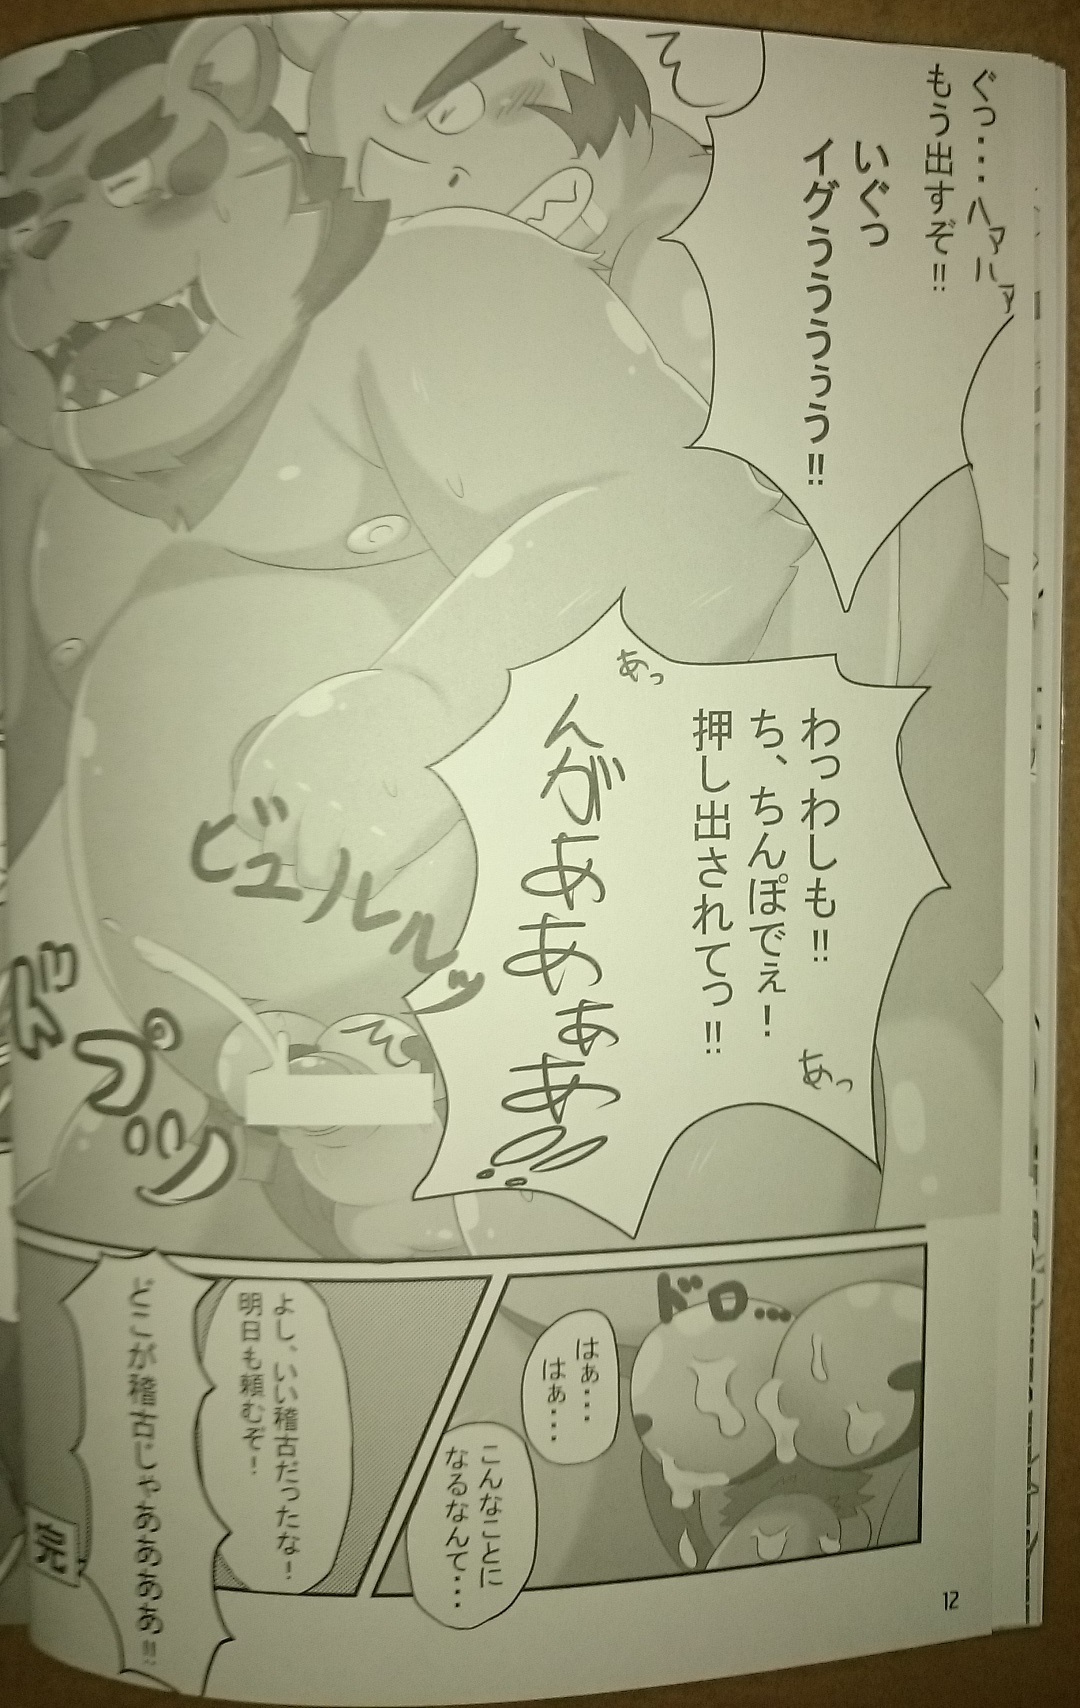 ぐっ・・・ハァハァ
もう出すぞ!!
いぐっ
イグぅうううぅう!!
わっわしも!!
ち、ちんぽでぇ!
押し出されてっ!!
あっ
あっ
んがああぁあ!!
ビュルルルッ
パンッ
ドロ…
はぁ・・・
はぁ・・・
こんなことに
なるなんて・・・
よし、いい稽古だったな!
明日も頼むぞ!
どこが稽古じゃああああああ!!
12